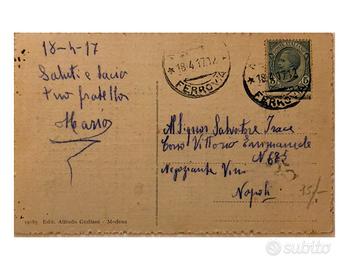 18-4-17
Saluti e baci
tuo fratello
Mario
18.4.17.12
FERROVIA
18.4.17.12
FERROVIA
A Signor Salvatore
Corso Vittorio Emmanuele
N 683
Negoziante Vini
Napoli
15/-
Ediz. Alfredo Giuliani - Modena
subito